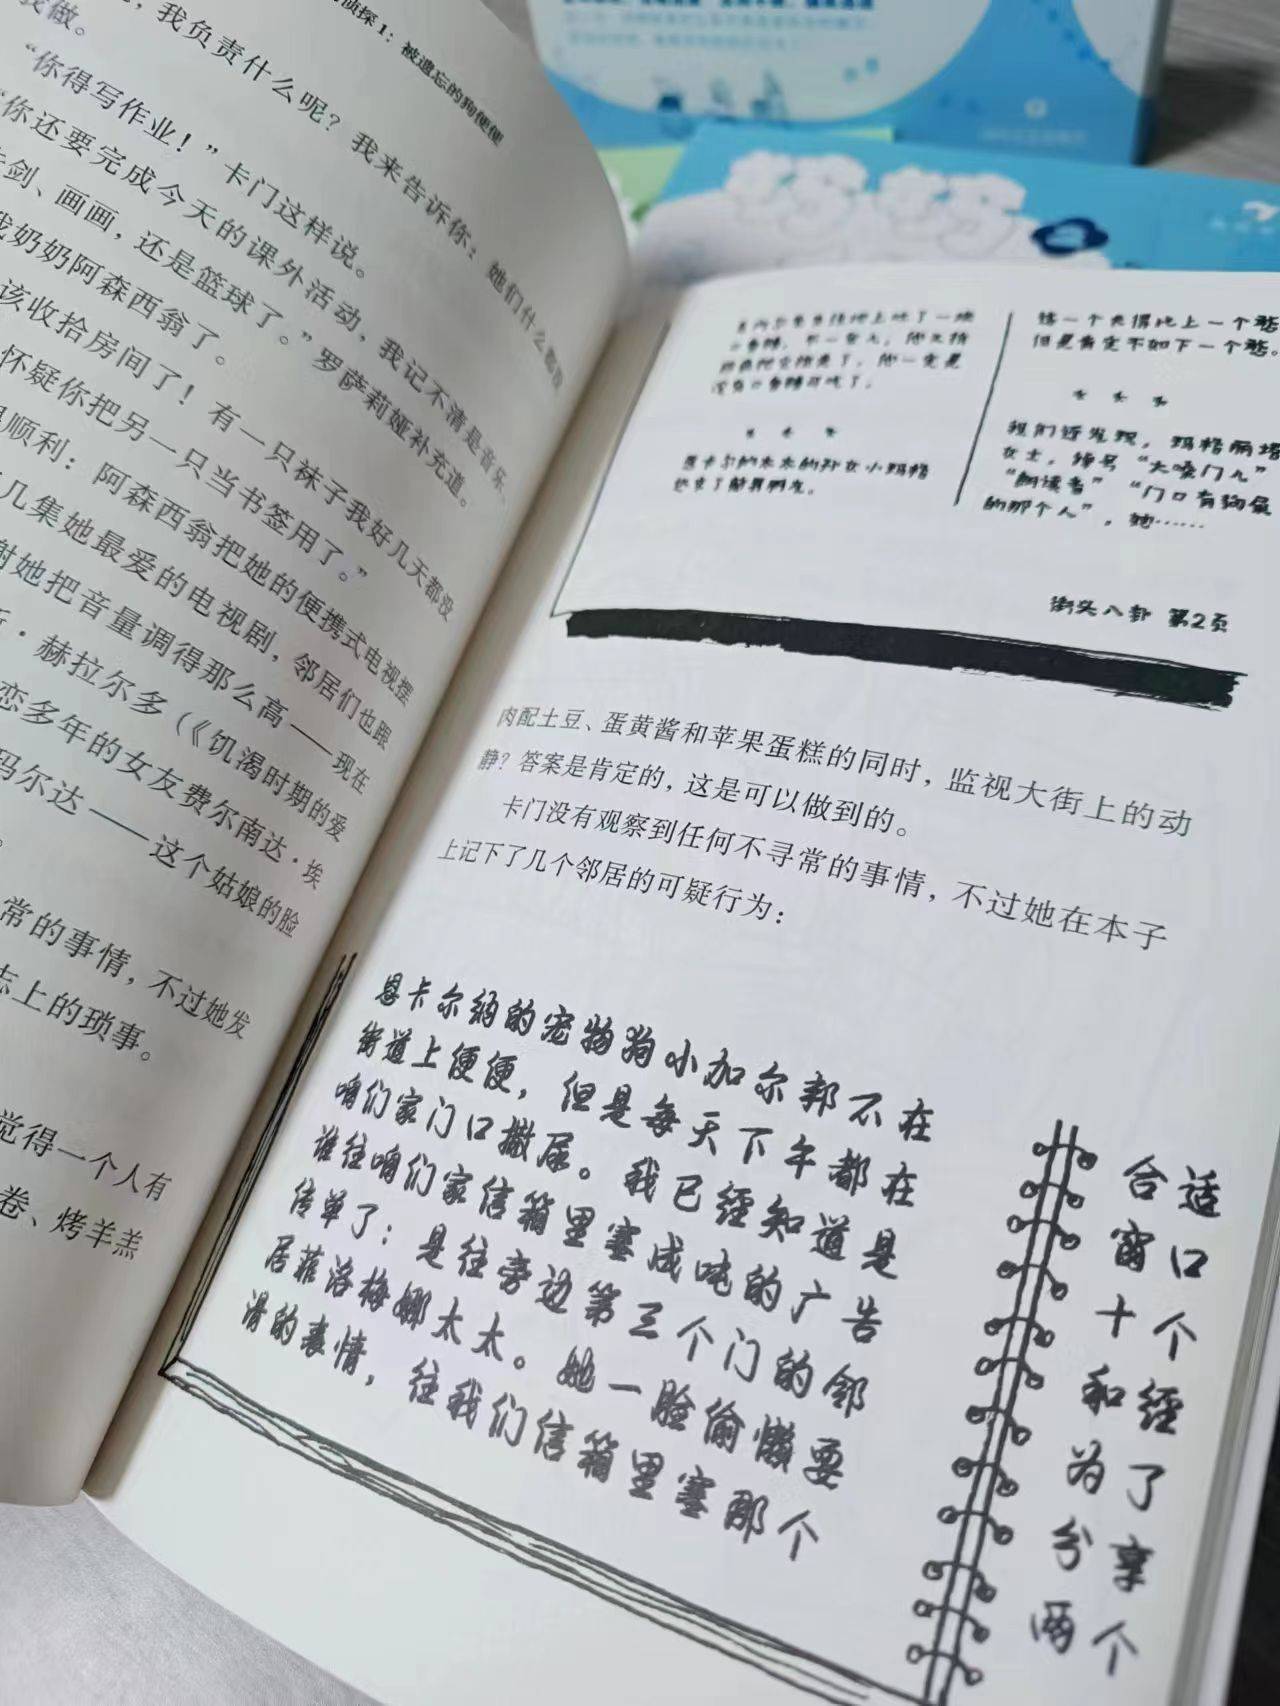 侦探1：被遗忘的狗便便
我做。
，我负责什么呢？我来告诉你：她们什么都没
“你得写作业！”卡门这样说。
“你还要完成今天的课外活动，我记不清是音乐、
剑、画画，还是篮球了。”罗萨莉娅补充道。
我奶奶阿森西翁了。
该收拾房间了！有一只袜子我好几天都没
怀疑你把另一只当书签用了。”
顺利：阿森西翁把她的便携式电视摆
几集她最爱的电视剧，邻居们也跟
谢她把音量调得那么高——现在
·赫拉尔多（《饥渴时期的爱
恋多年的女友费尔南达·埃
玛尔达——这个姑娘的脸
常的事情，不过她发
志上的琐事。
觉得一个人有
卷、烤羊羔
恩卡尔的未来的孙女小玛格
这一个来得比上一个憨
但是肯定不如下一个憨。
我们还发现，玛格丽塔
女士，绰号“大嗓门儿”
“朗读者”“门口有狗屎
的那个人”，她……
街头八卦 第2页
肉配土豆、蛋黄酱和苹果蛋糕的同时，监视大街上的动
静？答案是肯定的，这是可以做到的。
卡门没有观察到任何不寻常的事情，不过她在本子
上记下了几个邻居的可疑行为：
恩卡尔纳的宠物狗小加尔邦不在
街道上便便，但是每天下午都在
咱们家门口撒尿。我已经知道是
谁往咱们家信箱里塞成吨的广告
传单了：是往旁边第三个门的邻
居菲洛梅娜太太。她一脸偷懒耍
滑的表情，往我们信箱里塞那个
合适
窗口
十个
和经
为了
分享
两个